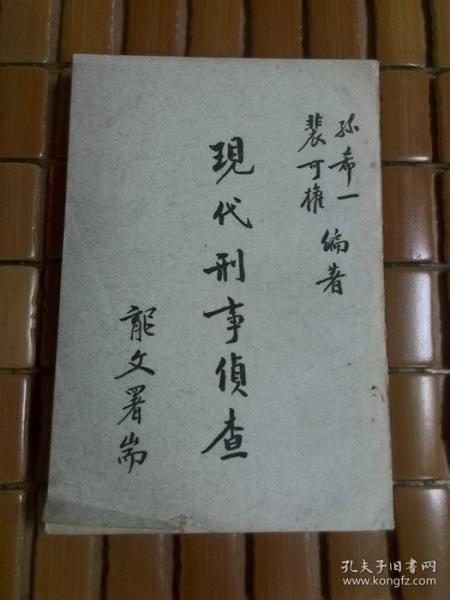 孫希一
裴可權 編著
現代刑事偵查
龍文署耑
孔夫子旧书网
www.kongfz.com